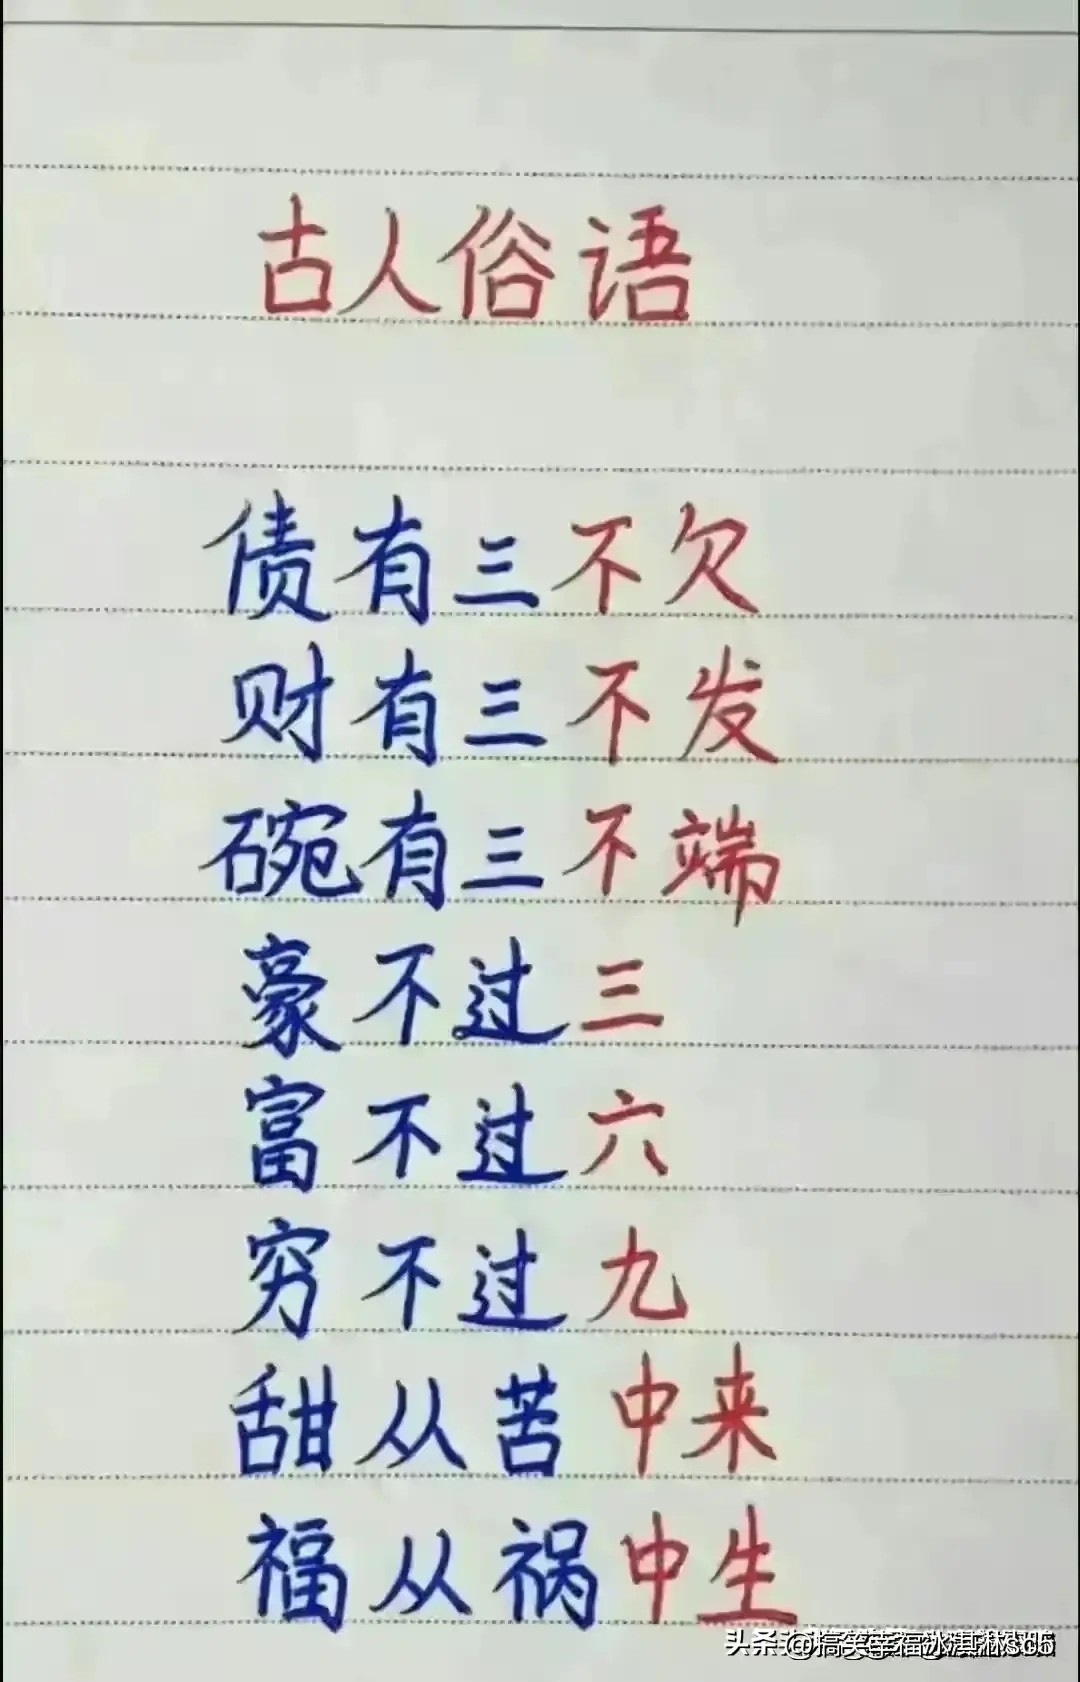 古人俗语
债有三不欠
财有三不发
碗有三不端
豪不过三
富不过六
穷不过九
甜从苦中来
福从祸中生
头条@搞笑幸福冰淇淋S6b